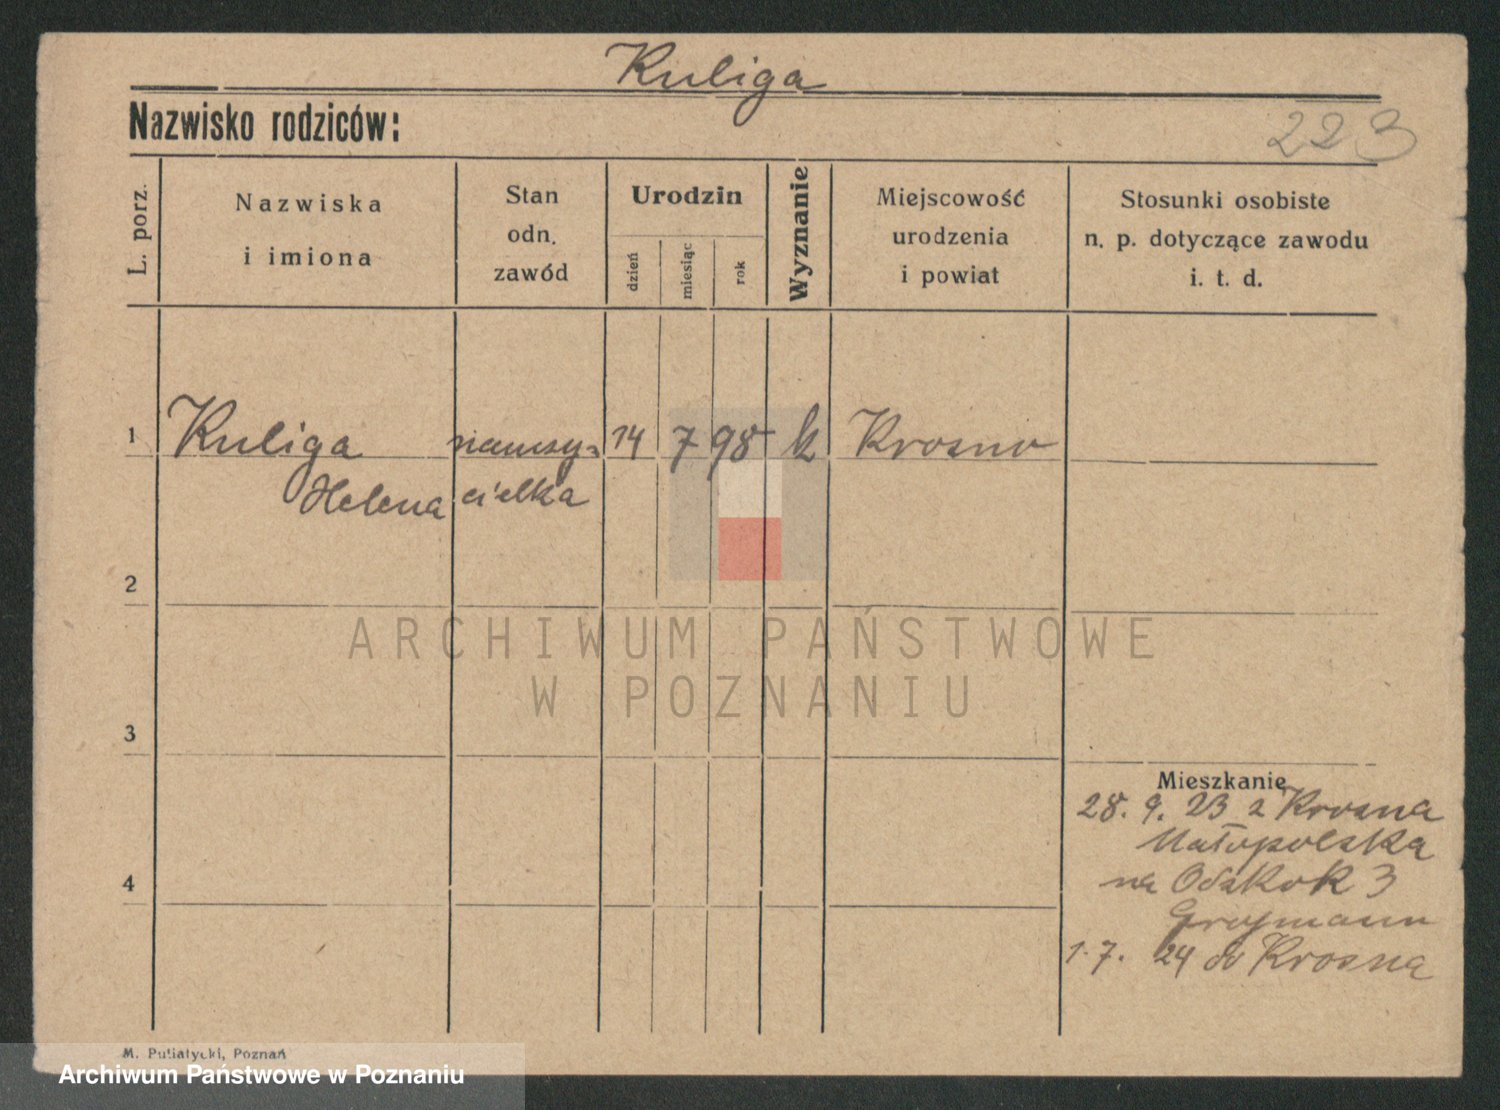 Kuliga
Nazwisko rodziców:
223
L. porz.
Nazwiska
i imiona
Stan
odn.
zawód
Urodzin
dzień
miesiąc
rok
Wyznanie
Miejscowość
urodzenia
i powiat
Stosunki osobiste
n. p. dotyczące zawodu
i. t. d.
1 Kuliga nauczy= 14 7 98 k Krosno
Helena cielka
2
ARCHIWUM PAŃSTWOWE
W POZNANIU
3
Mieszkanie
28. 9. 23 z Krosna
Małopolska
4
na 3
1. 7. 24 do Krosna
M. Putiatycki, Poznań
Archiwum Państwowe w Poznaniu